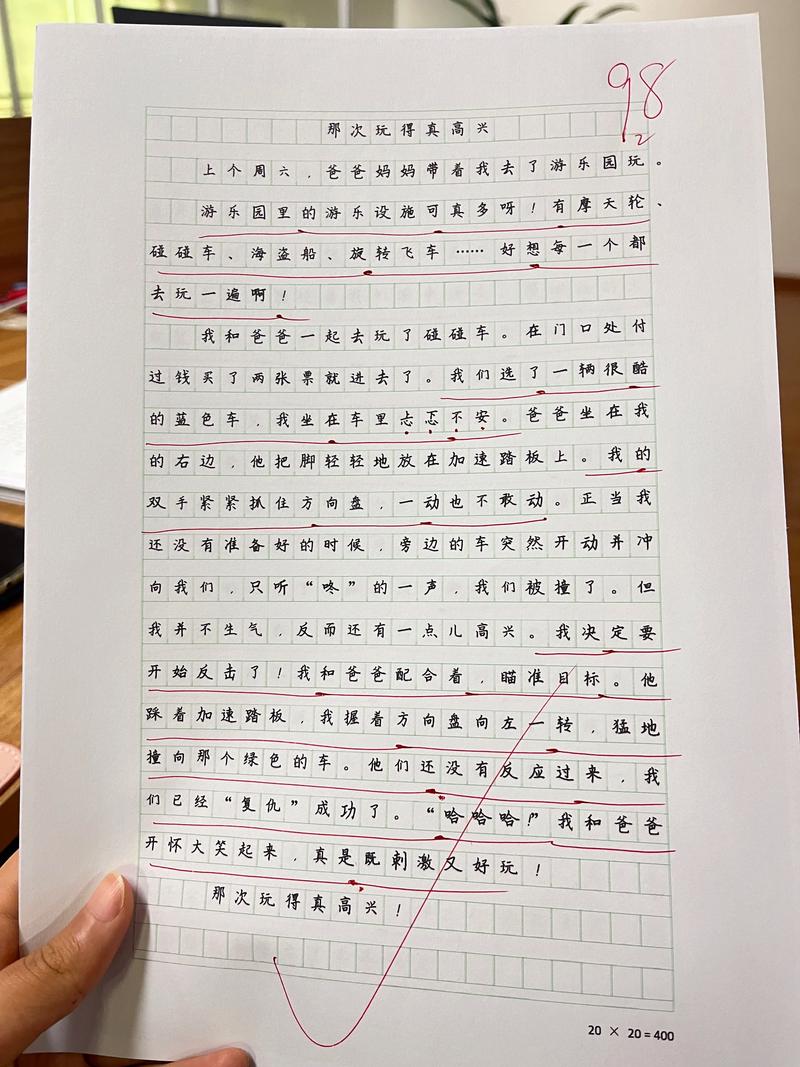 98
2
那次玩得真高兴
上个周六，爸爸妈妈带着我去了游乐园玩。
游乐园里的游乐设施可真多呀！有摩天轮、
碰碰车、海盗船、旋转飞车……好想每一个都
去玩一遍啊！
我和爸爸一起去玩了碰碰车。在门口处付
过钱买了两张票就进去了。我们选了一辆很酷
的蓝色车，我坐在车里忐忑不安。爸爸坐在我
的右边，他把脚轻轻地放在加速踏板上。我的
双手紧紧抓住方向盘，一动也不敢动。正当我
还没有准备好的时候，旁边的车突然开动并冲
向我们，只听“咚”的一声，我们被撞了。但
我并不生气，反而还有一点儿高兴。我决定要
开始反击了！我和爸爸配合着，瞄准目标。他
踩着加速踏板，我握着方向盘向左一转，猛地
撞向那个绿色的车。他们还没有反应过来，我
们已经“复仇”成功了。“哈哈哈！”我和爸爸
开怀大笑起来，真是既刺激又好玩！
那次玩得真高兴！
20 × 20 = 400